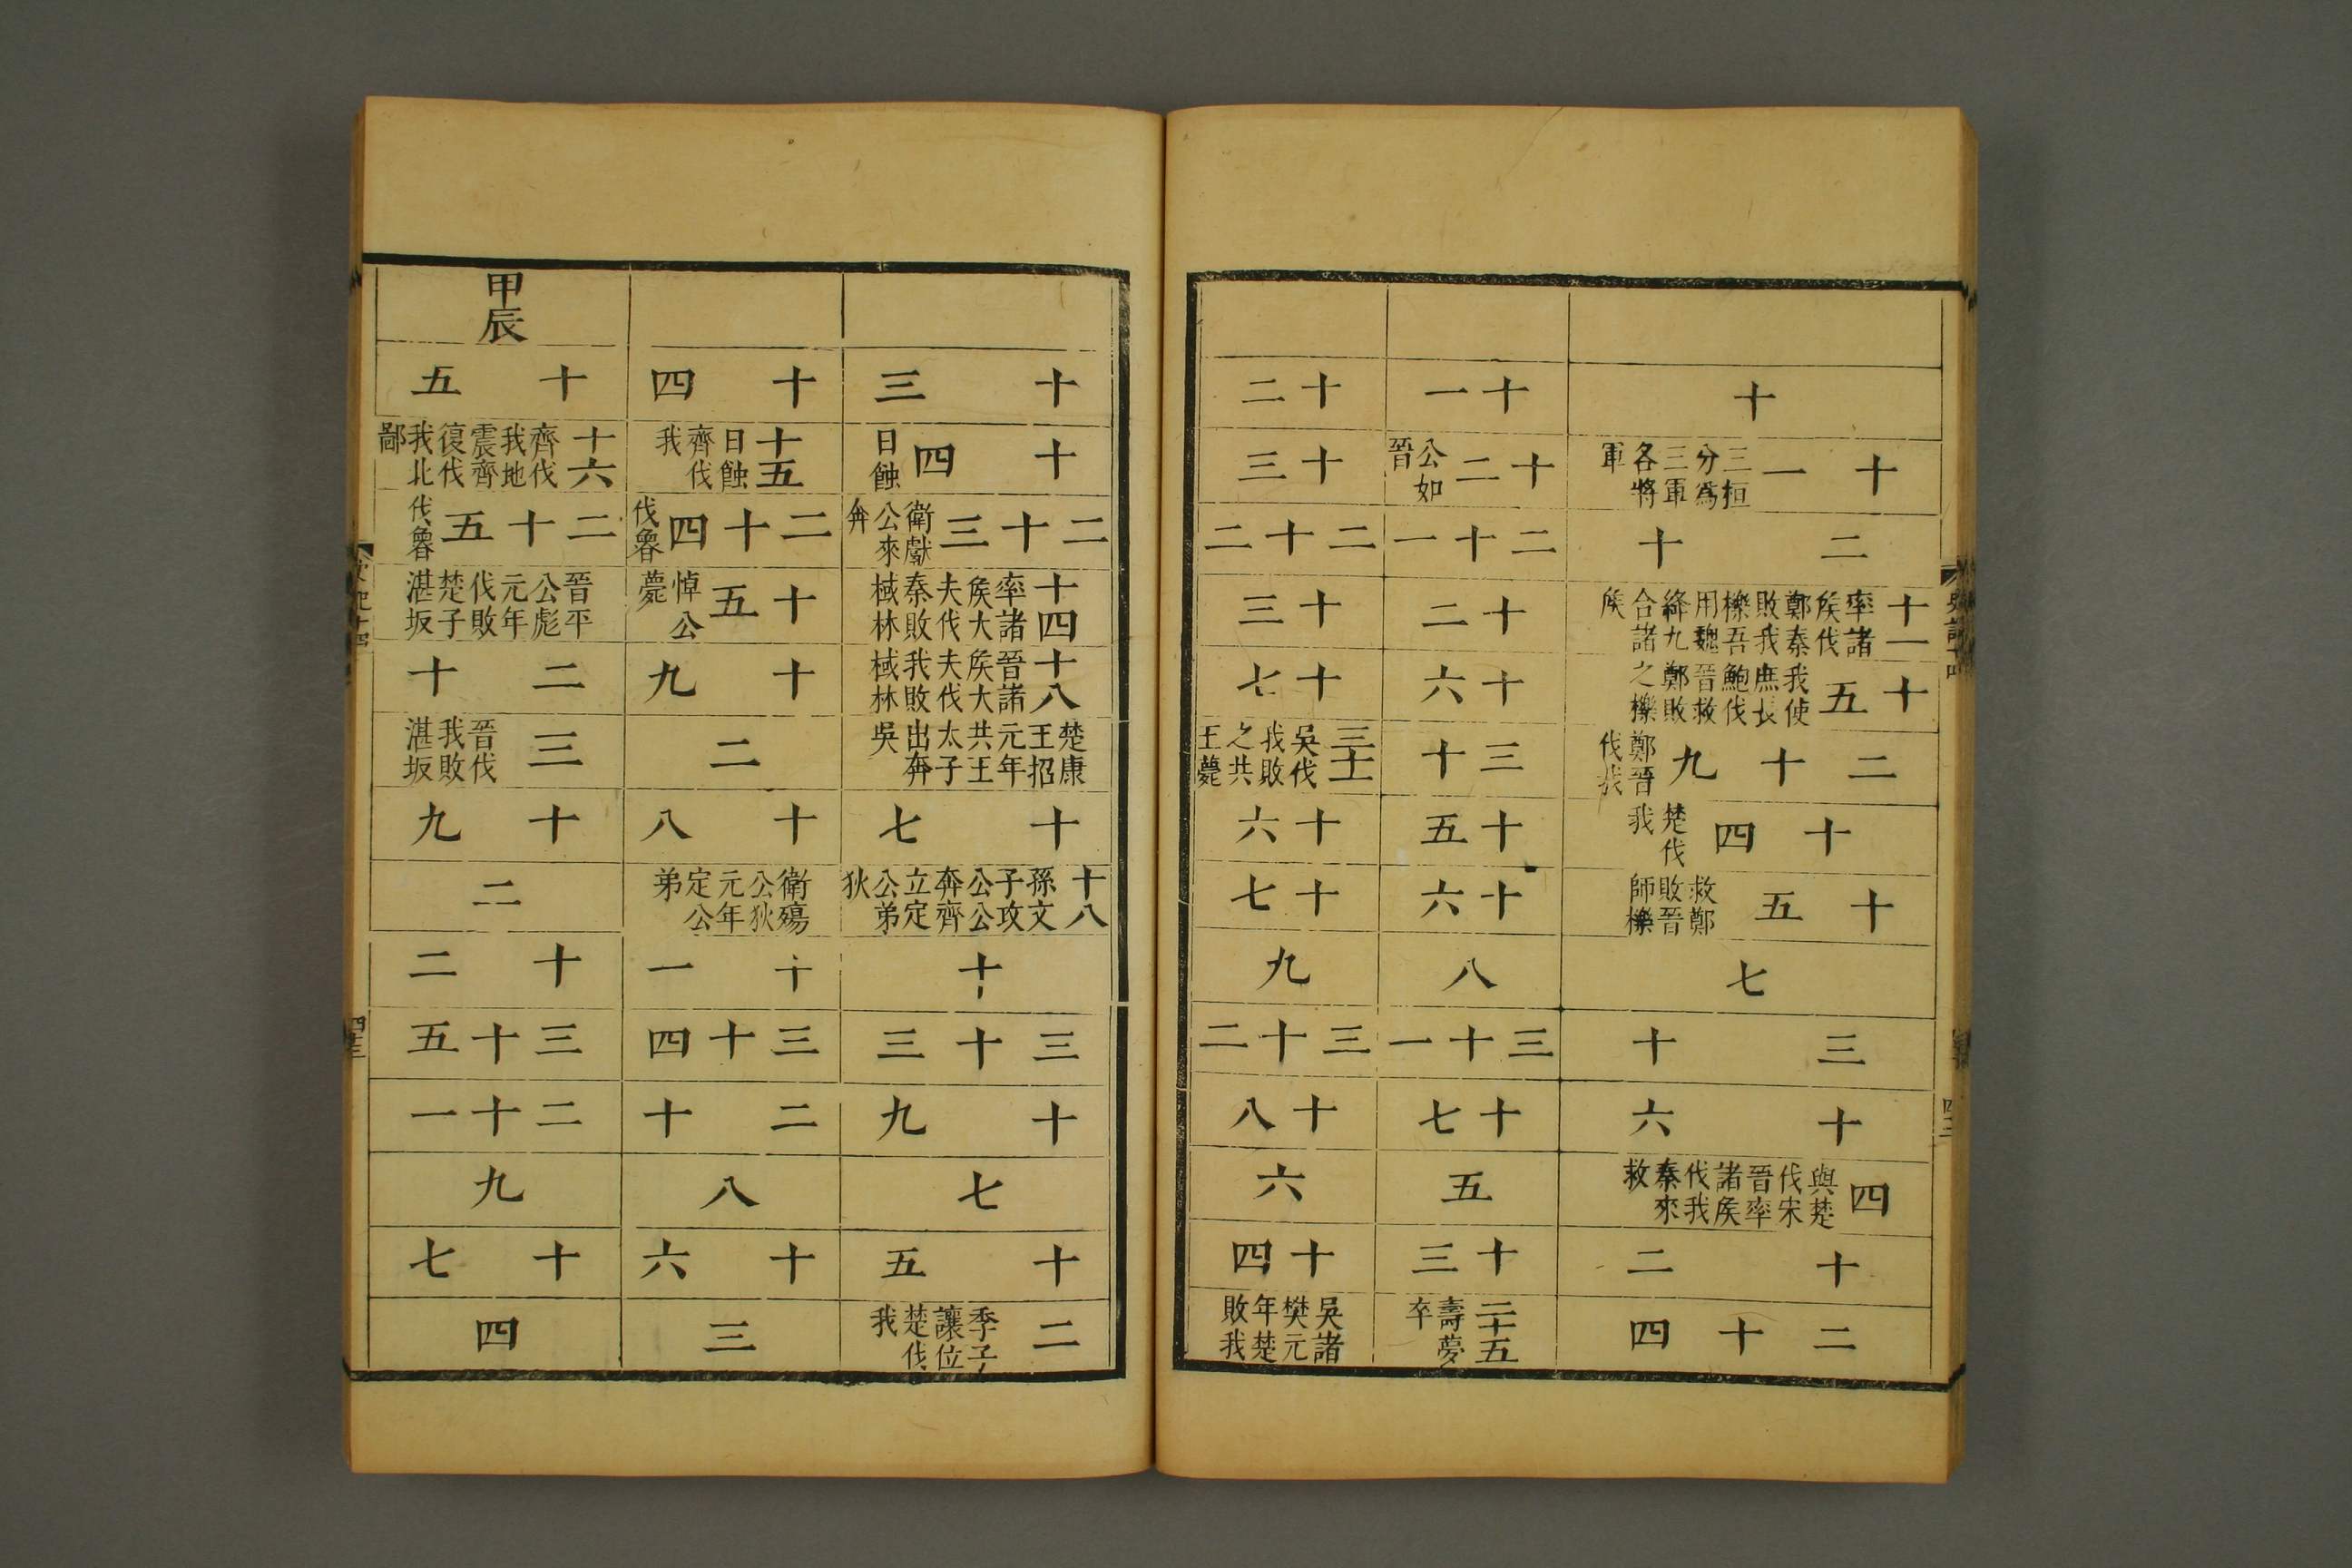 十
十一 三桓分爲三軍各將軍
二十
十一 率諸矦伐鄭秦敗我櫟吾用魏絳九合諸矦
十五 我使庶長鮑伐晉救鄭敗之櫟
二十九 鄭晉伐我
十四 楚伐我
十五 救鄭敗晉師櫟
七
三十
十六
四 與楚伐宋晉率諸矦伐我秦來救
十二
二十四
十一
十二 公如晉
二十一
十二
十六
三十
十五
十六
八
三十一
十七
五
十三
二十五 壽夢卒
十二
十三
二十二
十三
十七
三十一 吳伐我敗之共王薨
十六
十七
九
三十二
十八
六
十四
吳諸樊元年楚敗我
十三
十四 日蝕
二十三 衛獻公來奔
十四 率諸矦大夫伐秦敗棫林
十八 晉諸矦大夫伐我敗棫林
楚康王招元年共王太子出奔吳
十七
十八 孫文子攻公公奔齊立定公弟狄
十
三十三
十九
七
十五
二 季子讓位楚伐我
十四
十五 日蝕齊伐我
二十四 伐魯
十五 悼公薨
十九
二
十八
衛殤公狄元年定公弟
十一
三十四
二十
八
十六
三
甲辰
十五
十六 齊伐我地震齊復伐我北鄙
二十五 伐魯
晉平公彪元年伐敗楚子湛坂
二十
三 晉伐我敗湛坂
十九
二
十二
三十五
二十一
九
十七
四